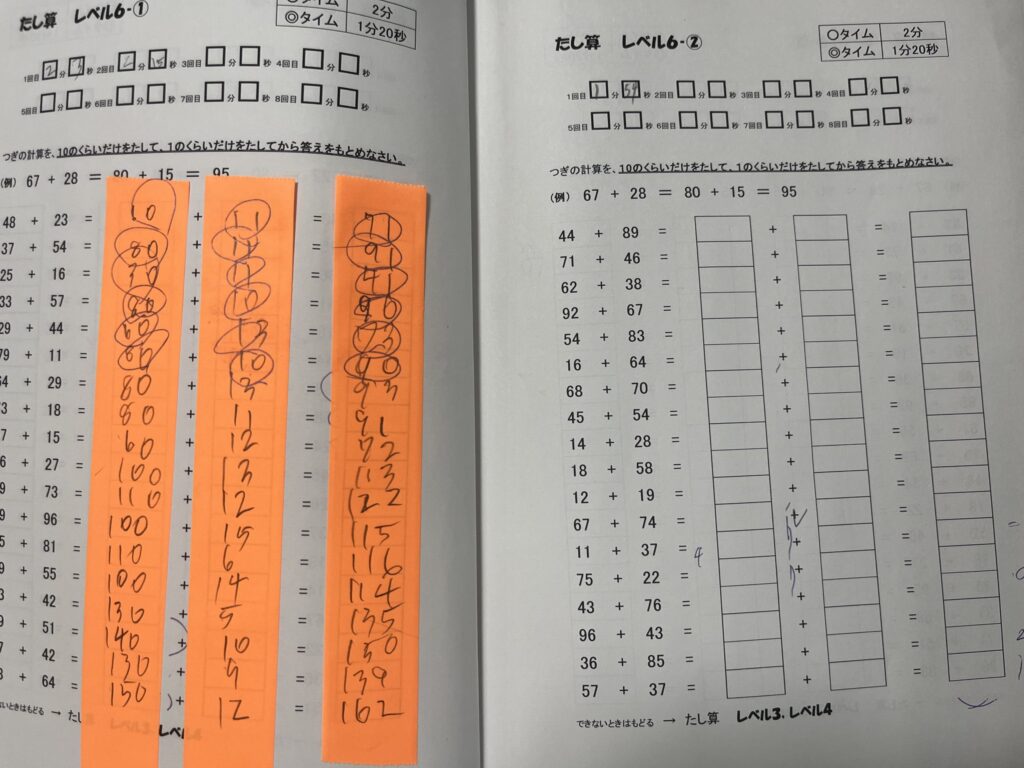 たし算 レベル6-①
◎タイム 2分
◎タイム 1分20秒
1回目 2 分 3 秒 2回目 2 分 15 秒 3回目 分 秒 4回目 分 秒
5回目 分 秒 6回目 分 秒 7回目 分 秒 8回目 分 秒
つぎの計算を、10のくらいだけをたして、1のくらいだけをたしてから答えをもとめなさい。
(例) 67 + 28 = 80 + 15 = 95
48 + 23 = 10 + 11 = 71
37 + 54 = 80 + 11 = 91
25 + 16 = 30 + 11 = 41
33 + 57 = 80 + 10 = 90
29 + 44 = 60 + 13 = 73
79 + 11 = 80 + 10 = 90
64 + 29 = 80 + 13 = 93
+ 18 = 80 + 11 = 91
+ 15 = 60 + 12 = 72
+ 27 = 100 + 13 = 113
+ 73 = 110 + 12 = 122
+ 96 = 100 + 15 = 115
+ 81 = 110 + 6 = 116
+ 55 = 100 + 14 = 114
+ 42 = 130 + 5 = 135
+ 51 = 140 + 10 = 150
+ 42 = 130 + 9 = 139
+ 64 = 150 + 12 = 162
ないときはもどる → たし
たし算 レベル6-②
〇タイム 2分
◎タイム 1分20秒
1回目 1 分 59 秒 2回目 分 秒 3回目 分 秒 4回目 分 秒
5回目 分 秒 6回目 分 秒 7回目 分 秒 8回目 分 秒
つぎの計算を、10のくらいだけをたして、1のくらいだけをたしてから答えをもとめなさい。
(例) 67 + 28 = 80 + 15 = 95
44 + 89 = + =
71 + 46 = + =
62 + 38 = + =
92 + 67 = + =
54 + 83 = + =
16 + 64 = + =
68 + 70 = + =
45 + 54 = + =
14 + 28 = + =
18 + 58 = + =
12 + 19 = + =
67 + 74 = + =
11 + 37 = 4 + =
75 + 22 = + =
43 + 76 = + =
96 + 43 = + =
36 + 85 = + =
57 + 37 = + =
できないときはもどる → たし算 レベル3、レベル4